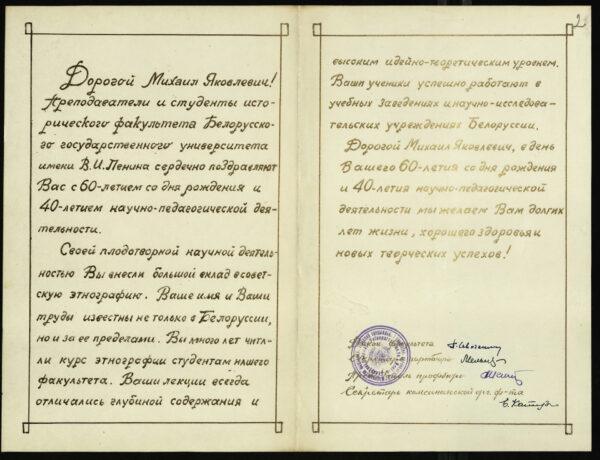 Дорогой Михаил Яковлевич!
Преподаватели и студенты исто-
рического факультета Белорусско-
го государственного университета
имени В.И.Ленина сердечно поздравляют
Вас с 60-летием со дня рождения и
40-летием научно-педагогической дея-
тельности.
Своей плодотворной научной деятель-
ностью Вы внесли большой вклад в совет-
скую этнографию. Ваше имя и Ваши
труды известны не только в Белоруссии,
но и за ее пределами. Вы много лет чита-
ли курс этнографии студентам нашего
факультета. Ваши лекции всегда
отличались глубиной содержания и
2
высоким идейно-теоретическим уровнем.
Ваши ученики успешно работают в
учебных заведениях и научно-исследова-
тельских учреждениях Белоруссии.
Дорогой Михаил Яковлевич, в день
Вашего 60-летия со дня рождения
и 40-летия научно-педагогической
деятельности мы желаем Вам долгих
лет жизни, хорошего здоровья и
новых творческих успехов!
Декан факультета
Секретарь партбюро
Председатель профбюро
Секретарь комсомольской орг. ф-та